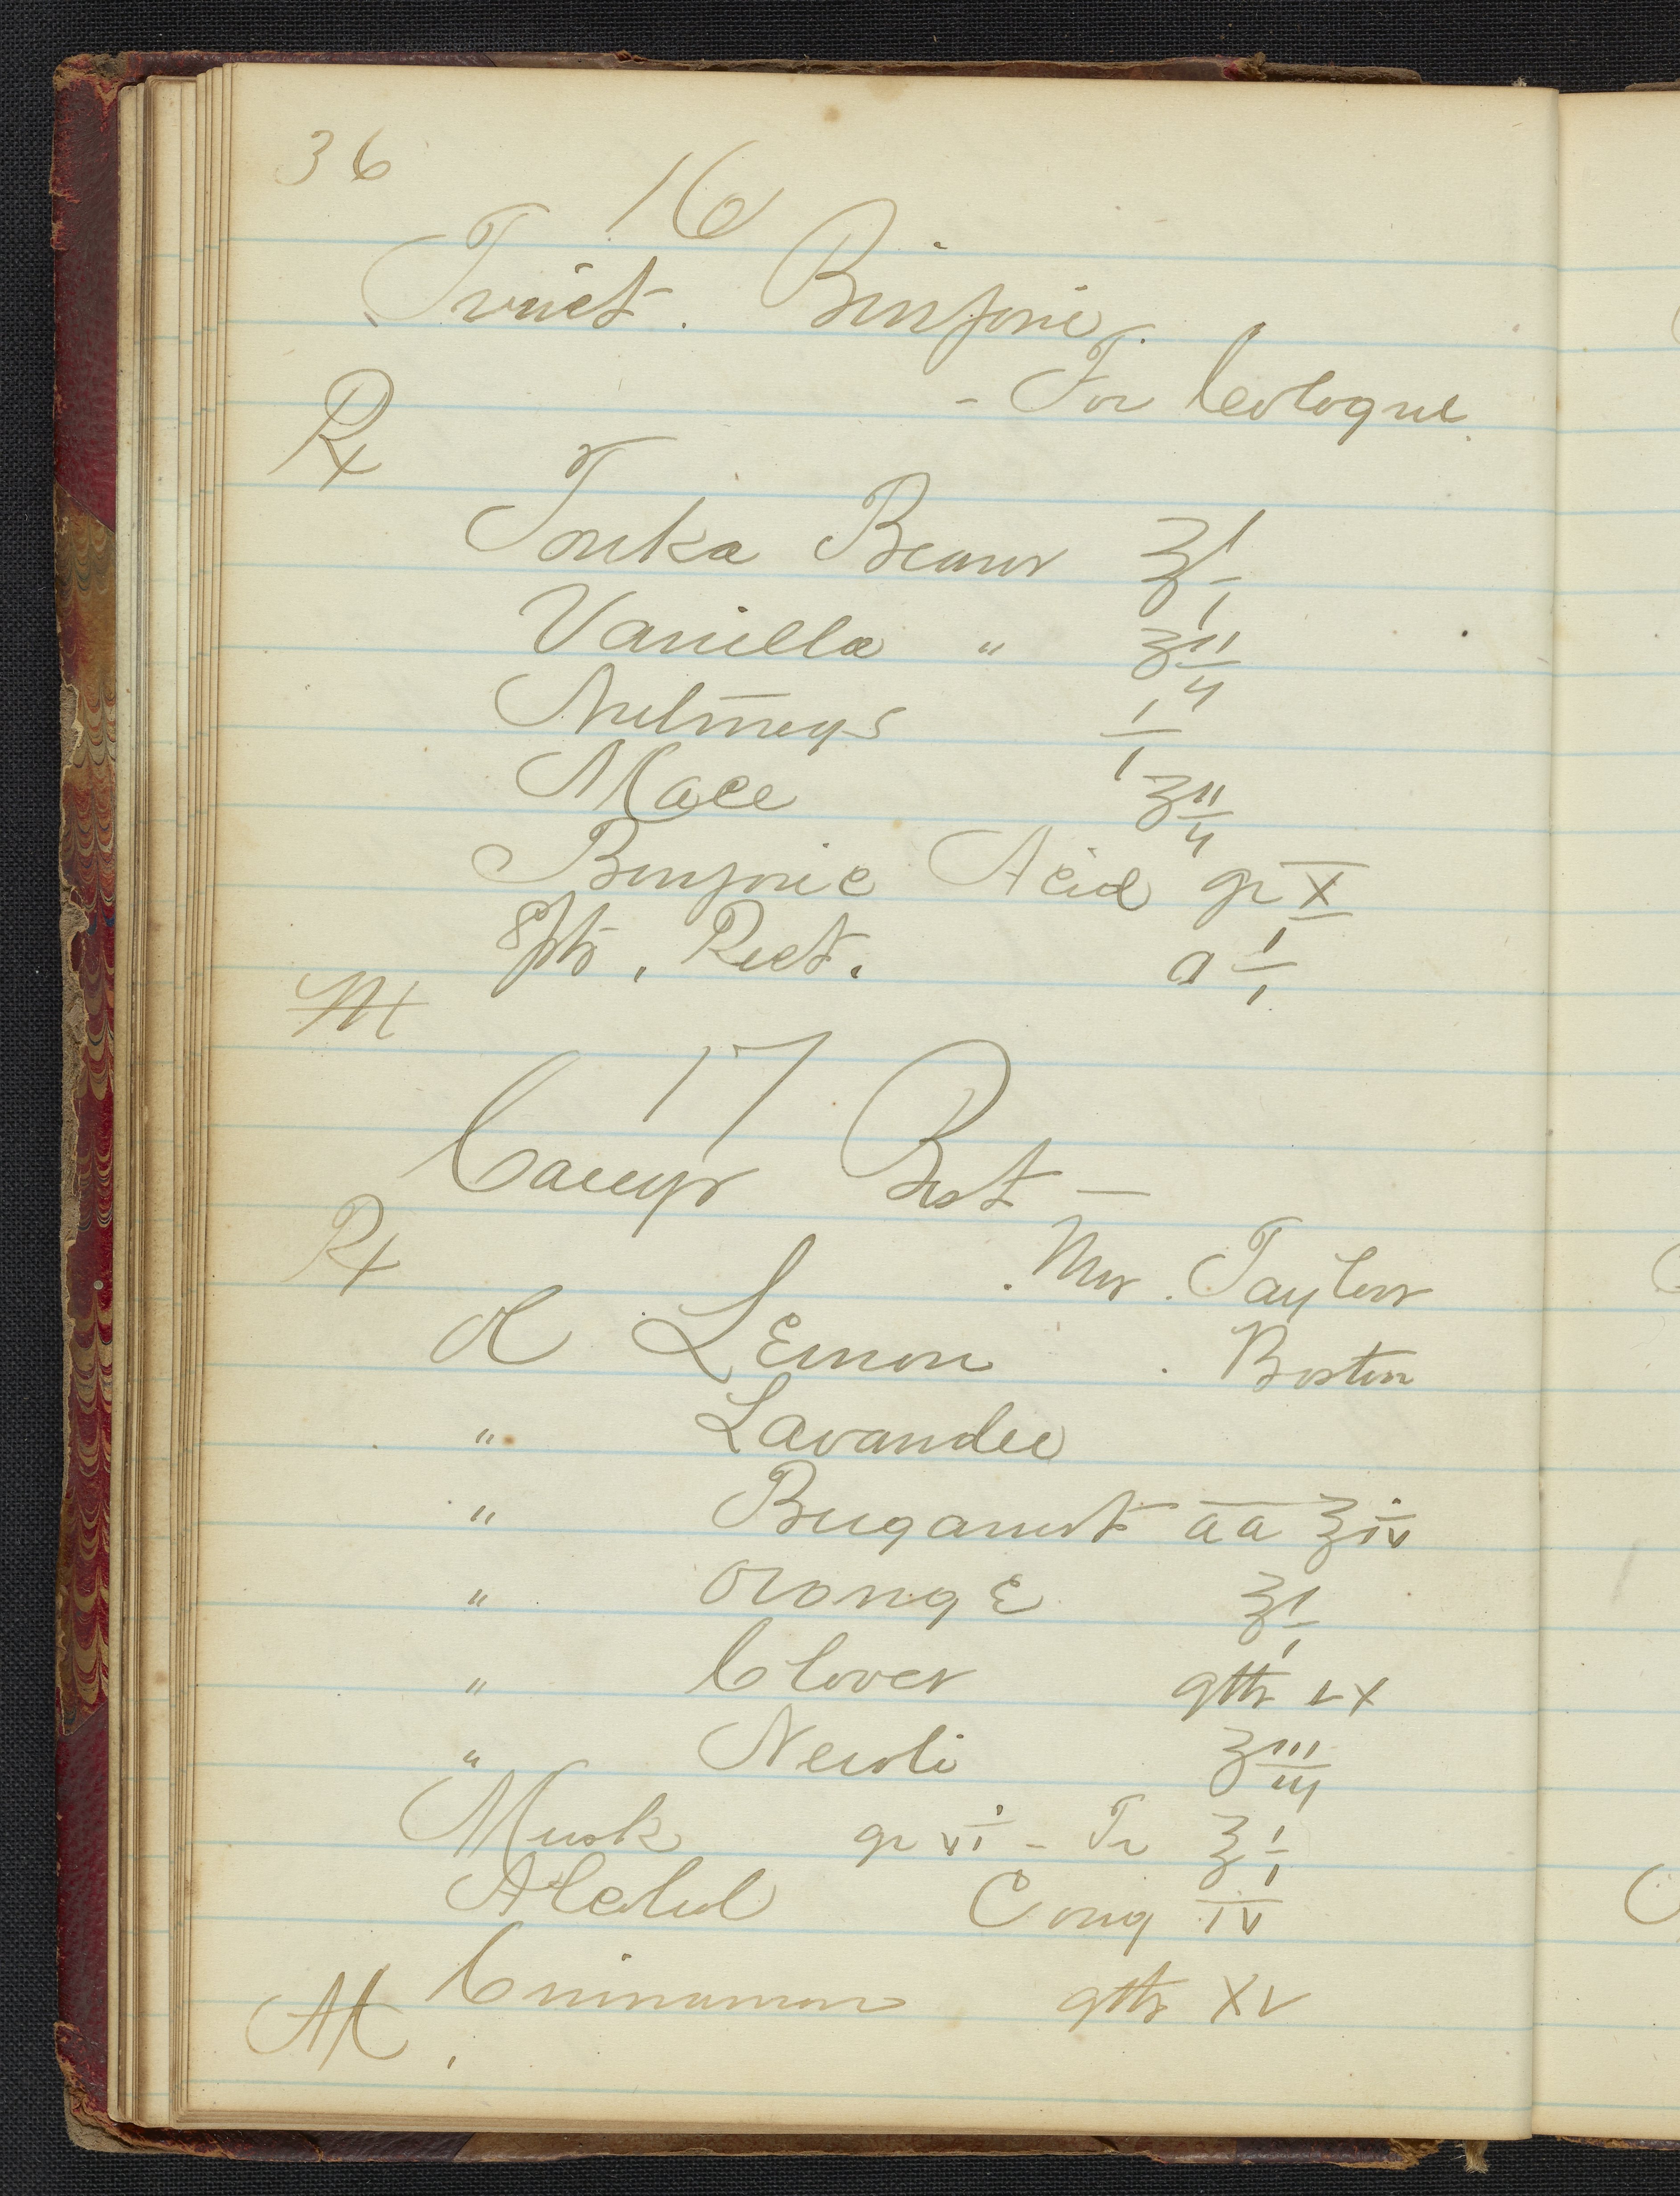 36
16
Tinct. Benzoic
- For Cologne.
Rx
Tonka Beans ℥ i
Vanilla " ℥ ii
Nutmegs i
Mace ʒ ii
Benzoic Acid gr x
Spts. Rect. O i
M
17
Best —
Rx
Mr. Taylor
Ol Lemon . Boston
" Lavandee
" Bergamot aa ℥ iv
" OrangE ℥ i
" Cloves gtts Lx
" Neroli ʒ iii
Musk gr vi - Tr ℥ i
Alcohol Cong iv
Cinnamon gtts xv
M.